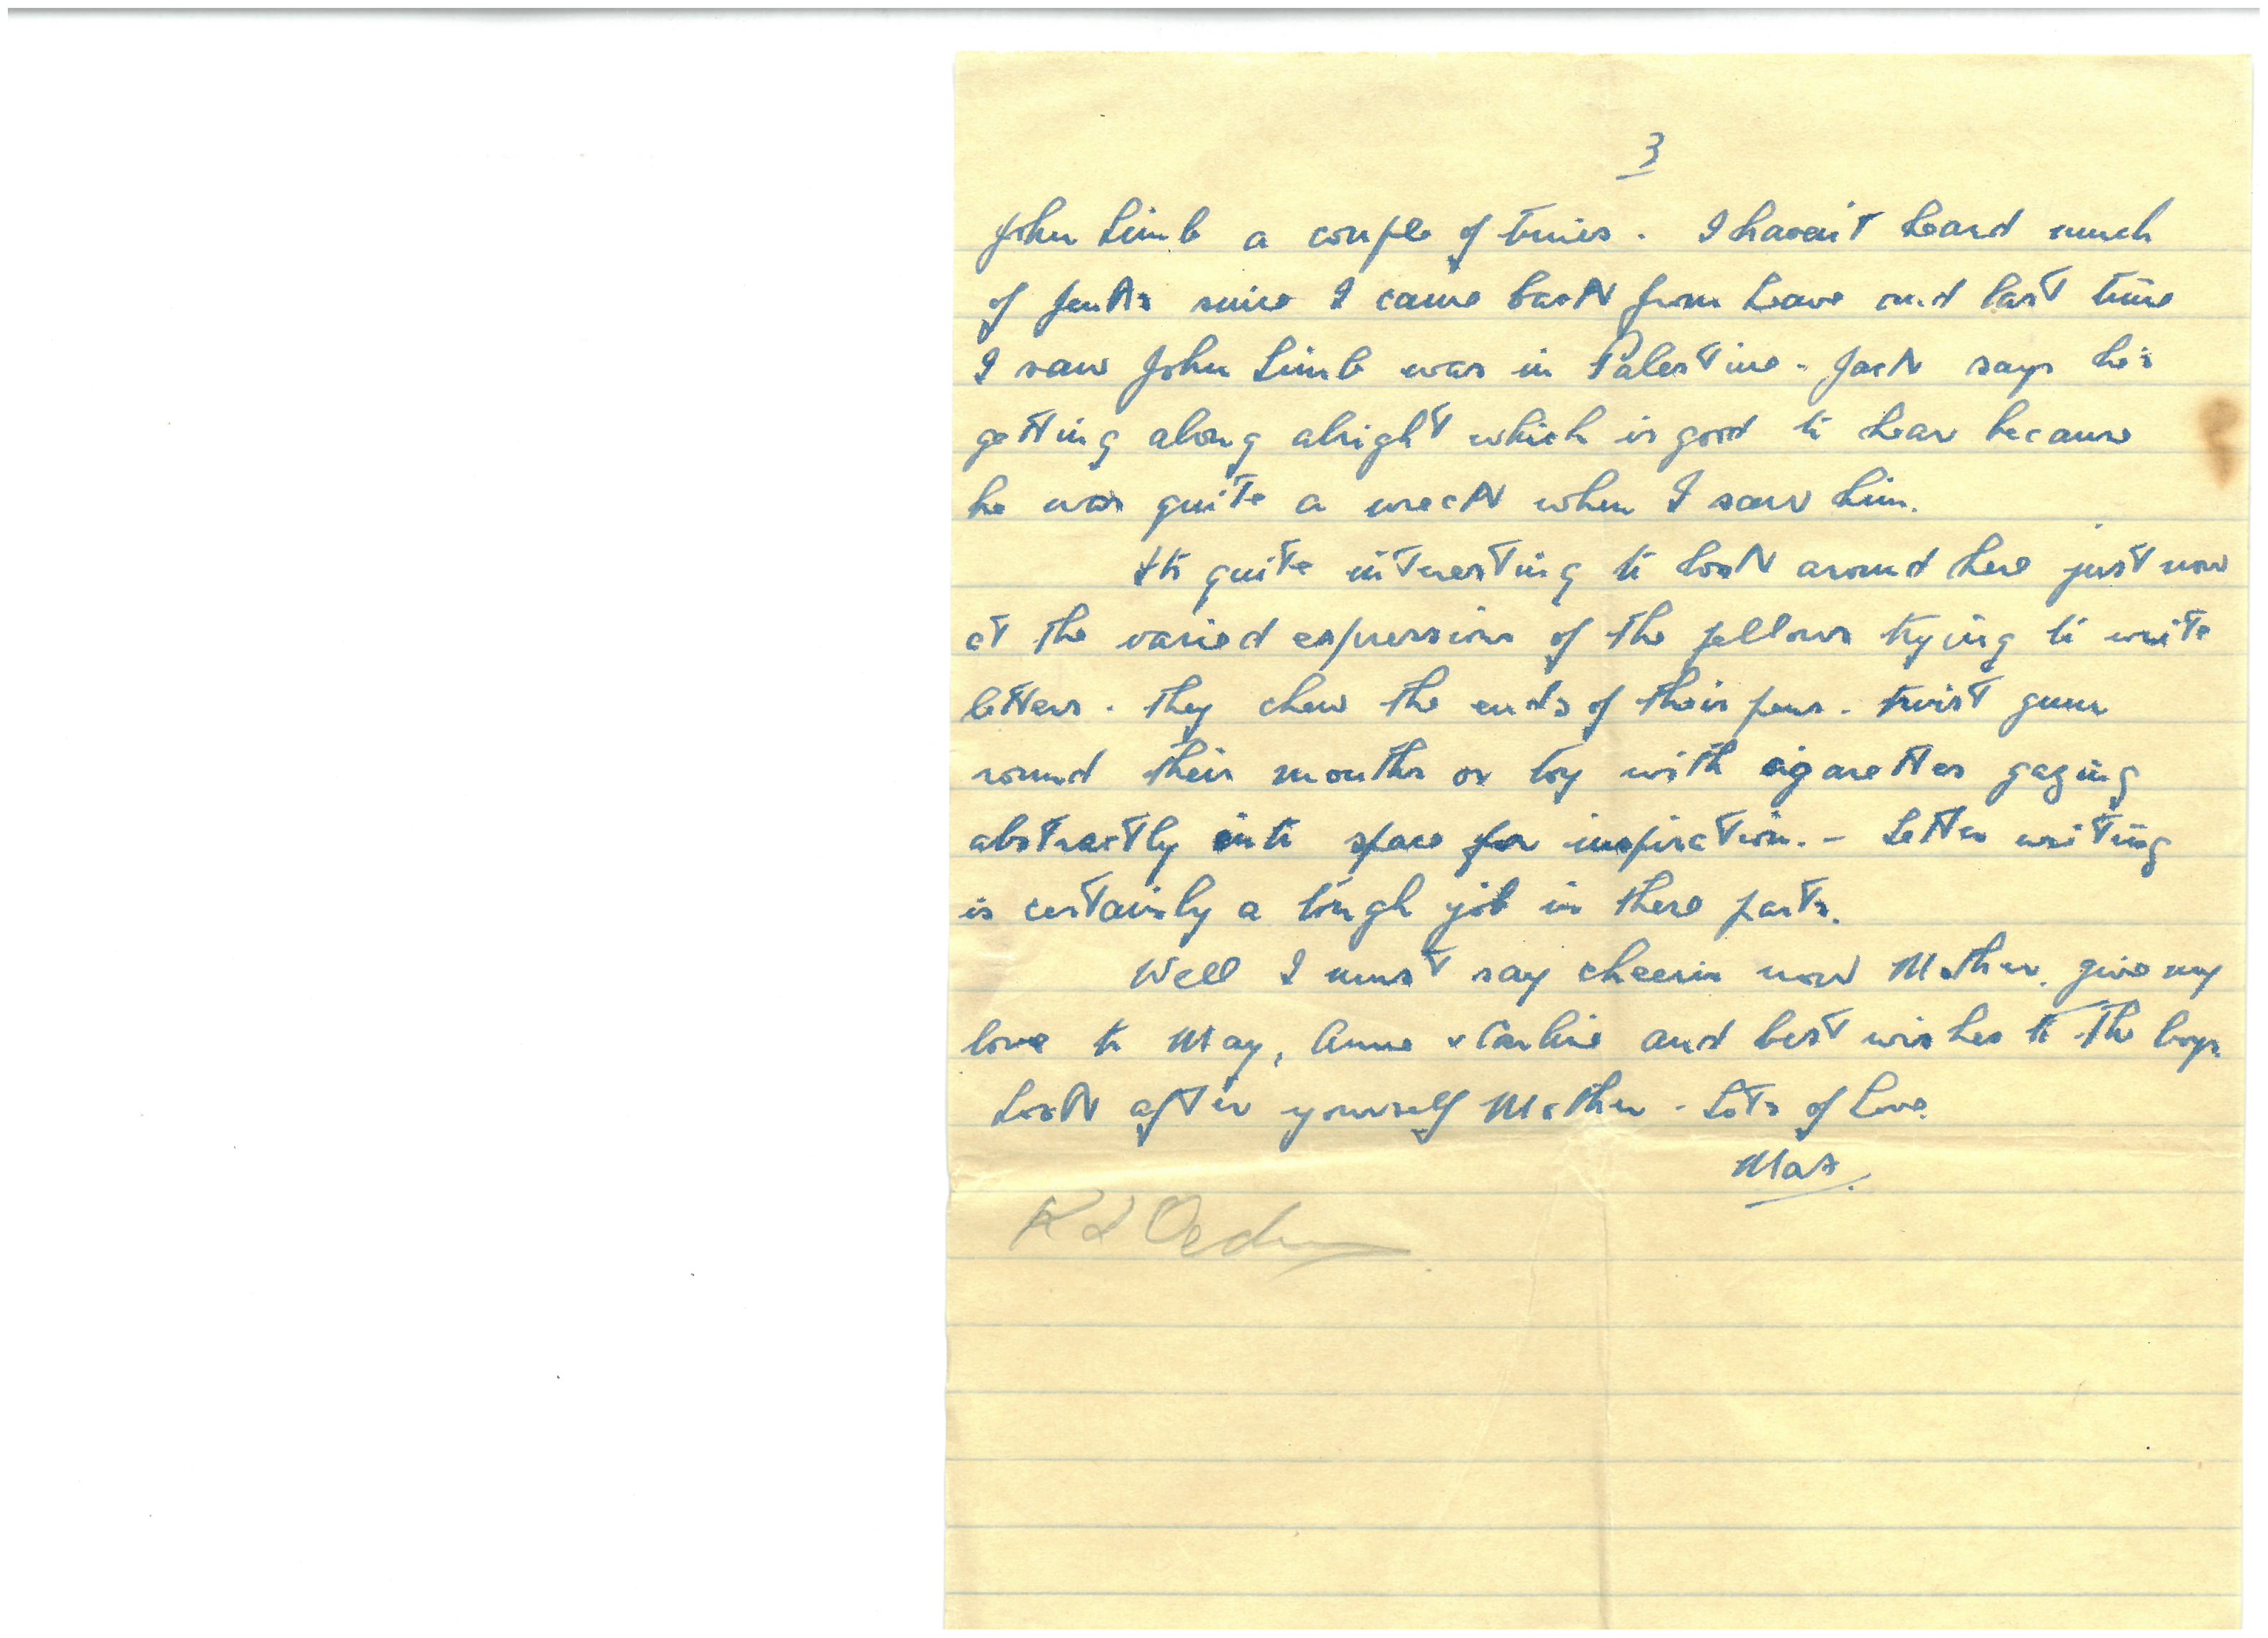 3
John Limb a couple of times. I haven't heard much
of Jenks since I came back from leave and last time
I saw John Limb was in Palestine - Jack says he's
getting along alright which is good to hear because
he was quite a wreck when I saw him.
Its quite interesting to look around here just now
at the varied expressions of the fellows trying to write
letters. They chew the ends of their pens - twist gum
round their mouths or toy with cigarettes gazing
abstractly into space for inspiration. - Letter writing
is certainly a tough job in these parts.
Well I must say cheerio now Mother. give my
love to May, Anne & and best wishes to the boys.
Look after yourself Mother - Lots of Love.
Max.